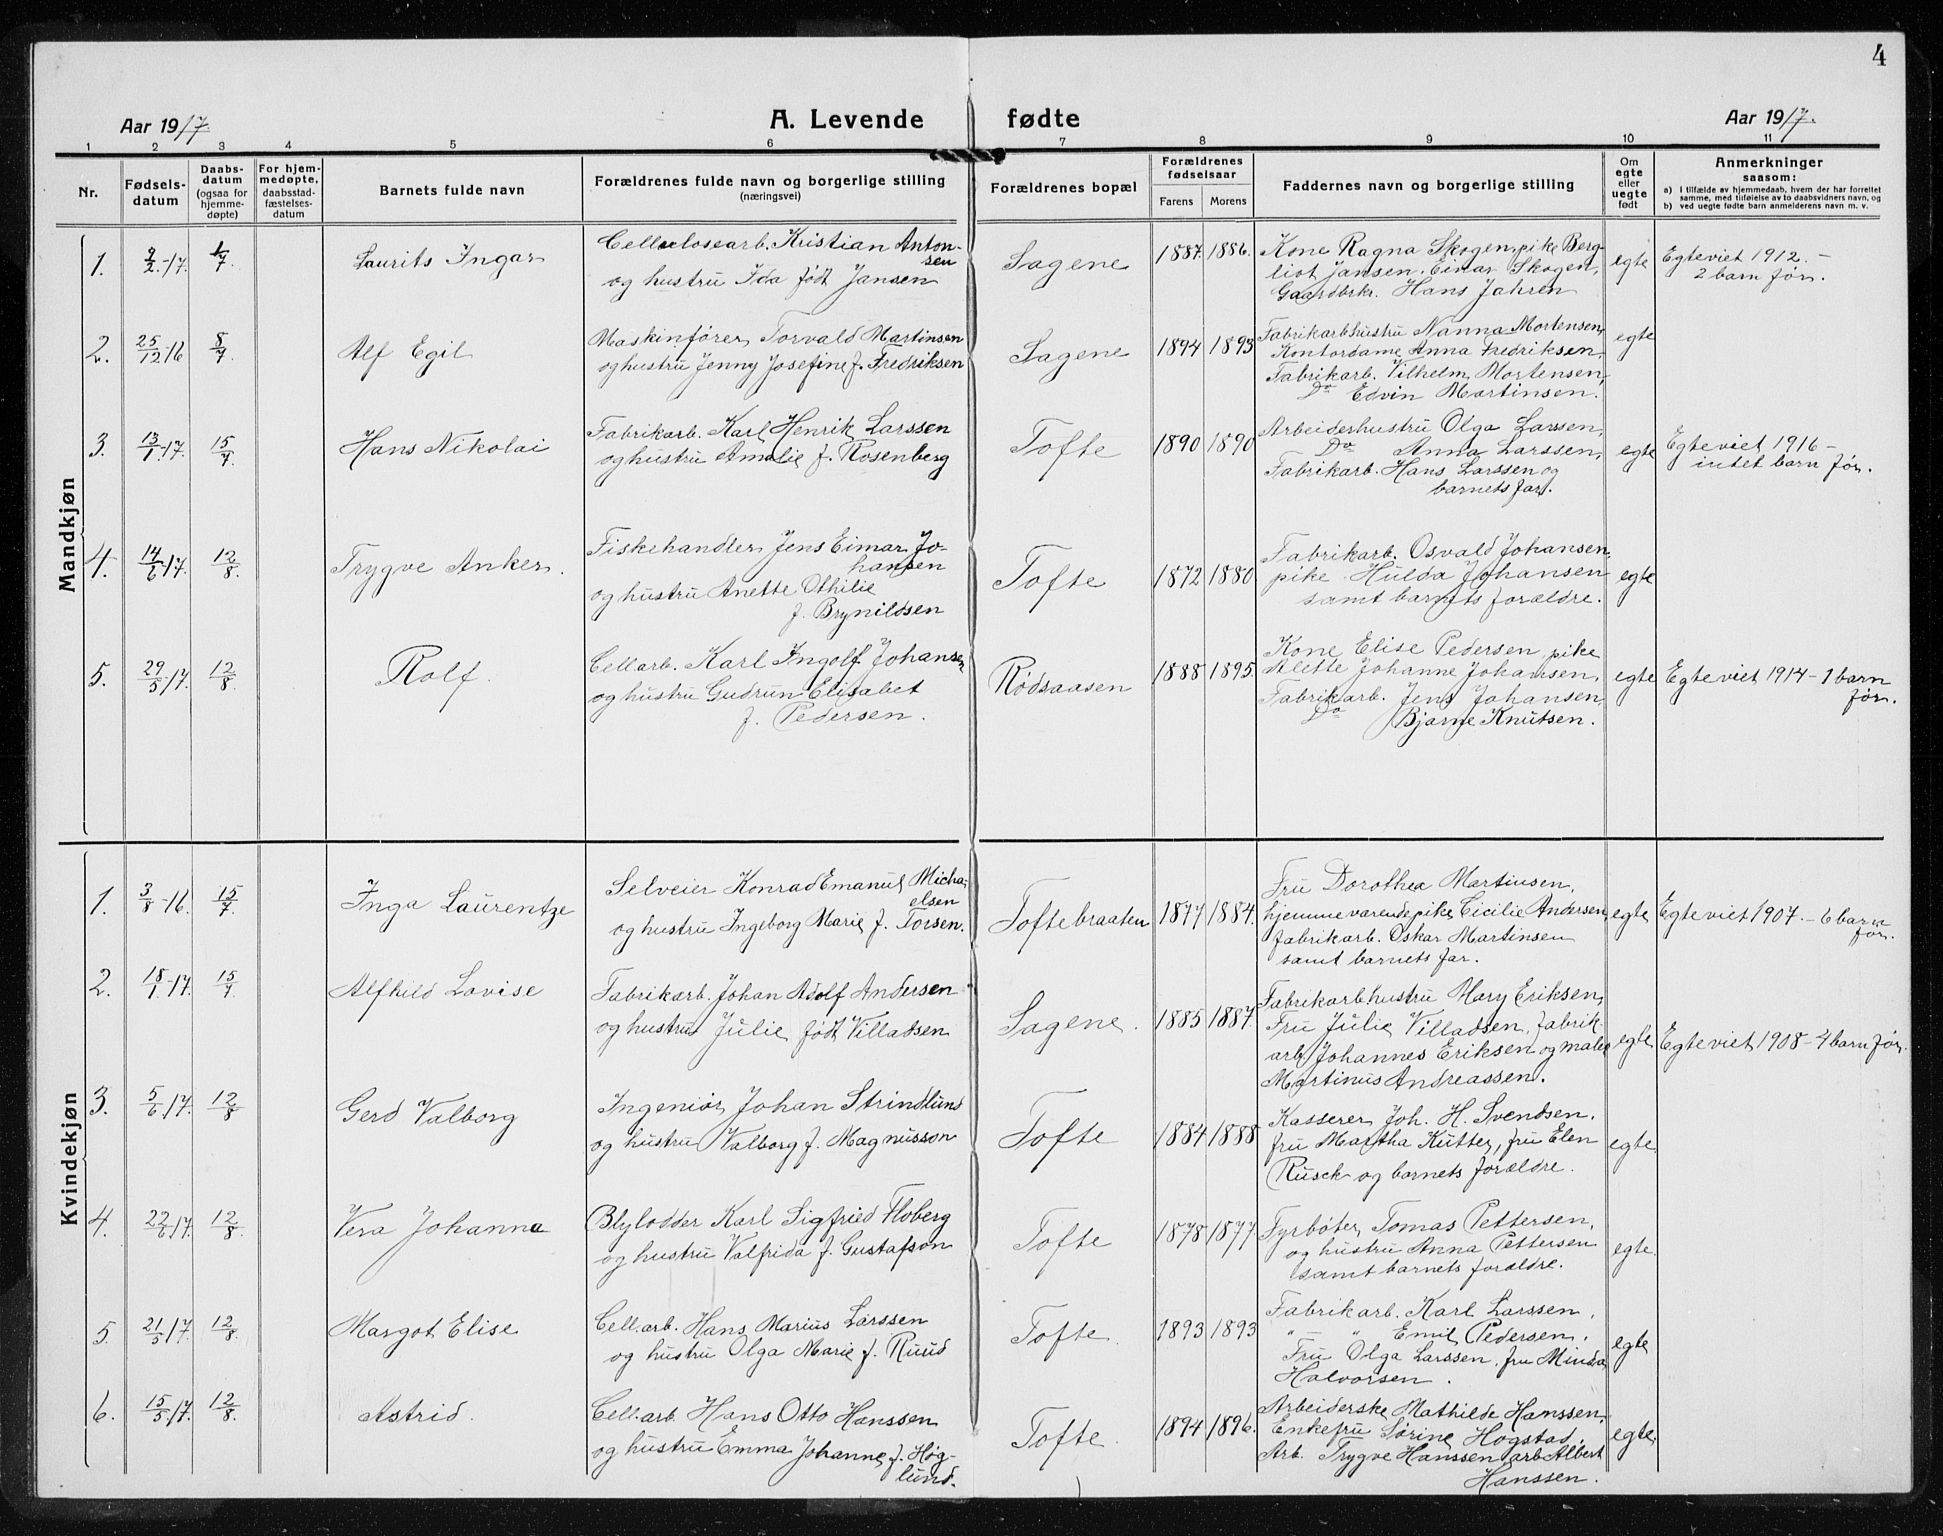 4
Aar 1917. A. Levende fødte Aar 1917.
1 2 3 4 5 6 7 8 9 10 11
Nr.
Fødsels-
datum
Daabs-
datum
(ogsaa for
hjemme-
døpte)
For hjem-
medøpte,
daabsstad-
fæstelses-
datum
Barnets fulde navn
Forældrenes fulde navn og borgerlige stilling
(næringsvei)
Forældrenes bopæl
Forældrenes
fødselsaar
Farens Morens
Faddernes navn og borgerlige stilling
Om
egte
eller
uegte
født
Anmerkninger
saasom:
a) I tilfælde av hjemmedaab, hvem der har forrettet
samme, med tilføielse av to daabsvidners navn, og
b) ved uegte fødte barn anmelderens navn m. v.
Mandkjøn
1. 9/2-17. 1/7. Laurits Ingar
Cellulosearb. Kristian Anton-
sen
og hustru Ida født Jansen
Sagene 1887. 1886.
Kone Ragna Skogen, pike Berg-
liot Jansen. Einar Skogen,
Gaardbrkr. Hans Jahren
egte
Egteviet 1912. -
2 barn før.
2. 25/12 16 8/7. Alf Egil
Maskinfører Torvald Martinsen
og hustru Jenny Josefine f. Fredriksen
Sagene 1894 1893
Fabrikarbhustru Nanna Mortensen,
Kontordame Anna Fredriksen,
Fabrikarb. Vilhelm Mortensen,
Do Edvin Martinsen.
egte
3. 13/1-17. 15/7 Hans Nikolai
Fabrikarb. Karl Henrik Larssen
og hustru Amalie f. Rosenberg
Tofte 1890 1890
Arbeiderhustru Olga Larssen,
Do Anna Larssen,
Fabrikarb. Hans Larssen og
barnets far.
egte
Egteviet 1916 -
intet barn før.
4. 14/6 17. 12/8. Trygve Anker.
Fiskehandler Jens Eimar Jo-
hansen
og hustru Anette Othilie
f. Brynildsen
Tofte 1872 1880
Fabrikarb. Osvald Johansen,
pike Hulda Johansen
samt barnets forældre.
egte
5. 29/5 17. 12/8 Rolf.
Cellarb. Karl Ingolf Johansen
og hustru Gudrun Elisabet
f. Pedersen.
Rødsaasen 1888 1895.
Kone Elise Pedersen, pike
Alette Johanne Johansen,
Fabrikarb. Jens Johansen,
Do Bjarne Knutsen.
egte
Egteviet 1914 - 1 barn
før.
Kvindekjøn
1. 3/8-16. 15/7. Inga Laurentze
Selveier Konrad Emanuel Micha-
elsen
og hustru Ingeborg Marie f. Torsen.
Toftebraaten 1877 1884.
Fru Dorothea Martinsen,
hjemmeværende pike Cicilie Andersen,
fabrikarb. Oskar Martinsen
samt barnets far.
egte
Egteviet 1907. - 6 barn
før.
2. 18/1-17. 15/7. Alfhild Lovise
Fabrikarb. Johan Adolf Andersen
og hustru Julie født Villadsen
Sagene. 1885 1887.
Fabrikarbhustru Mary Eriksen,
Fru Julie Villadsen, fabrik-
arb. Johannes Eriksen og maler
Martinus Andreassen.
egte
Egteviet 1908 - 4 barn før.
3. 5/6 17. 12/8 Gerd Valborg
Ingeniør Johan Strindlund
og hustru Valborg f. Magnusson
Tofte 1884 1888
Kasserer Joh. H. Svendsen,
fru Martha Kutter, fru Elen
Rusck og barnets forældre.
egte.
4. 22/6 17. 12/8. Vera Johanna
Blylodder Karl Sigfried Floberg
og hustru Valfrida f. Gustafson
Tofte 1878 1877.
Fyrbøter Tomas Pettersen,
og hustru Anna Pettersen
samt barnets forældre.
egte.
5. 21/5 17. 12/8. Margot Elise
Cell.arb. Hans Marius Larssen
og hustru Olga Marie f. Ruud
Tofte. 1893 1893
Fabrikarb. Karl Larssen,
" — " Emil Pedersen.
Fru Olga Larssen, fru Minda
Halvorsen.
egte
6. 15/5 17. 12/8. Astrid.
Cell.arb. Hans Otto Hanssen
og hustru Emma Johanne f. Høg-
lund.
Tofte. 1894 1896.
Arbeiderske Mathilde Hanssen,
Enkefru Sørine Hogstad,
Arb. Trygve Hanssen, arb Albert
Hanssen.
egte.